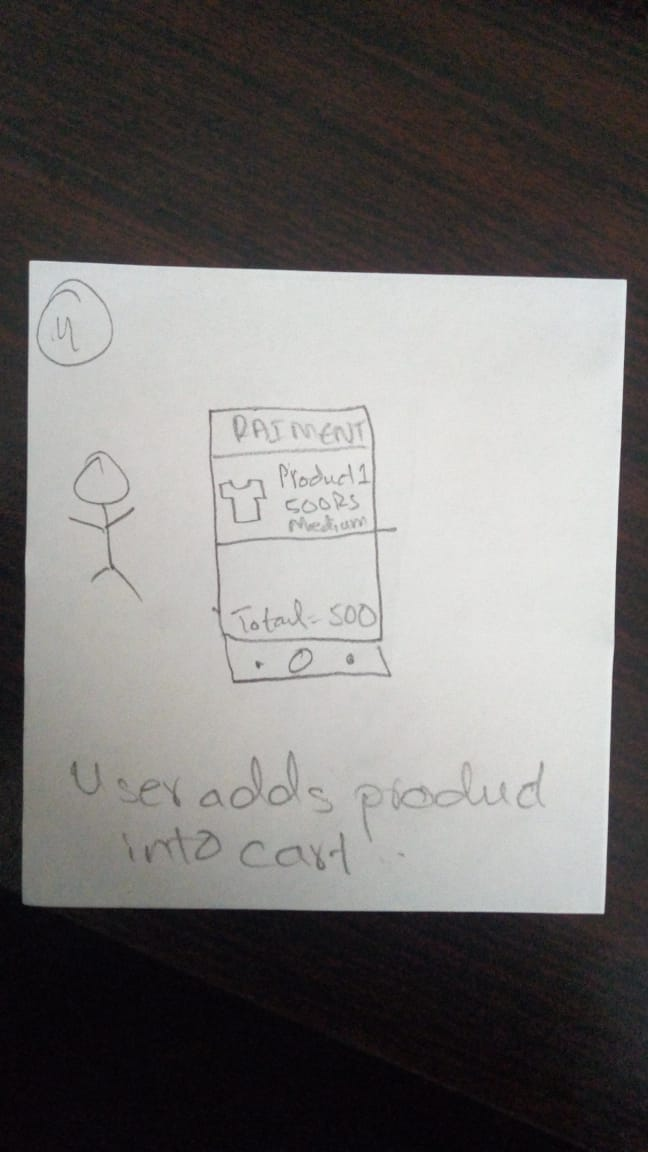 4
RAIMENT
Product 1
500RS
Medium
Total = 500
User adds product
into cart.